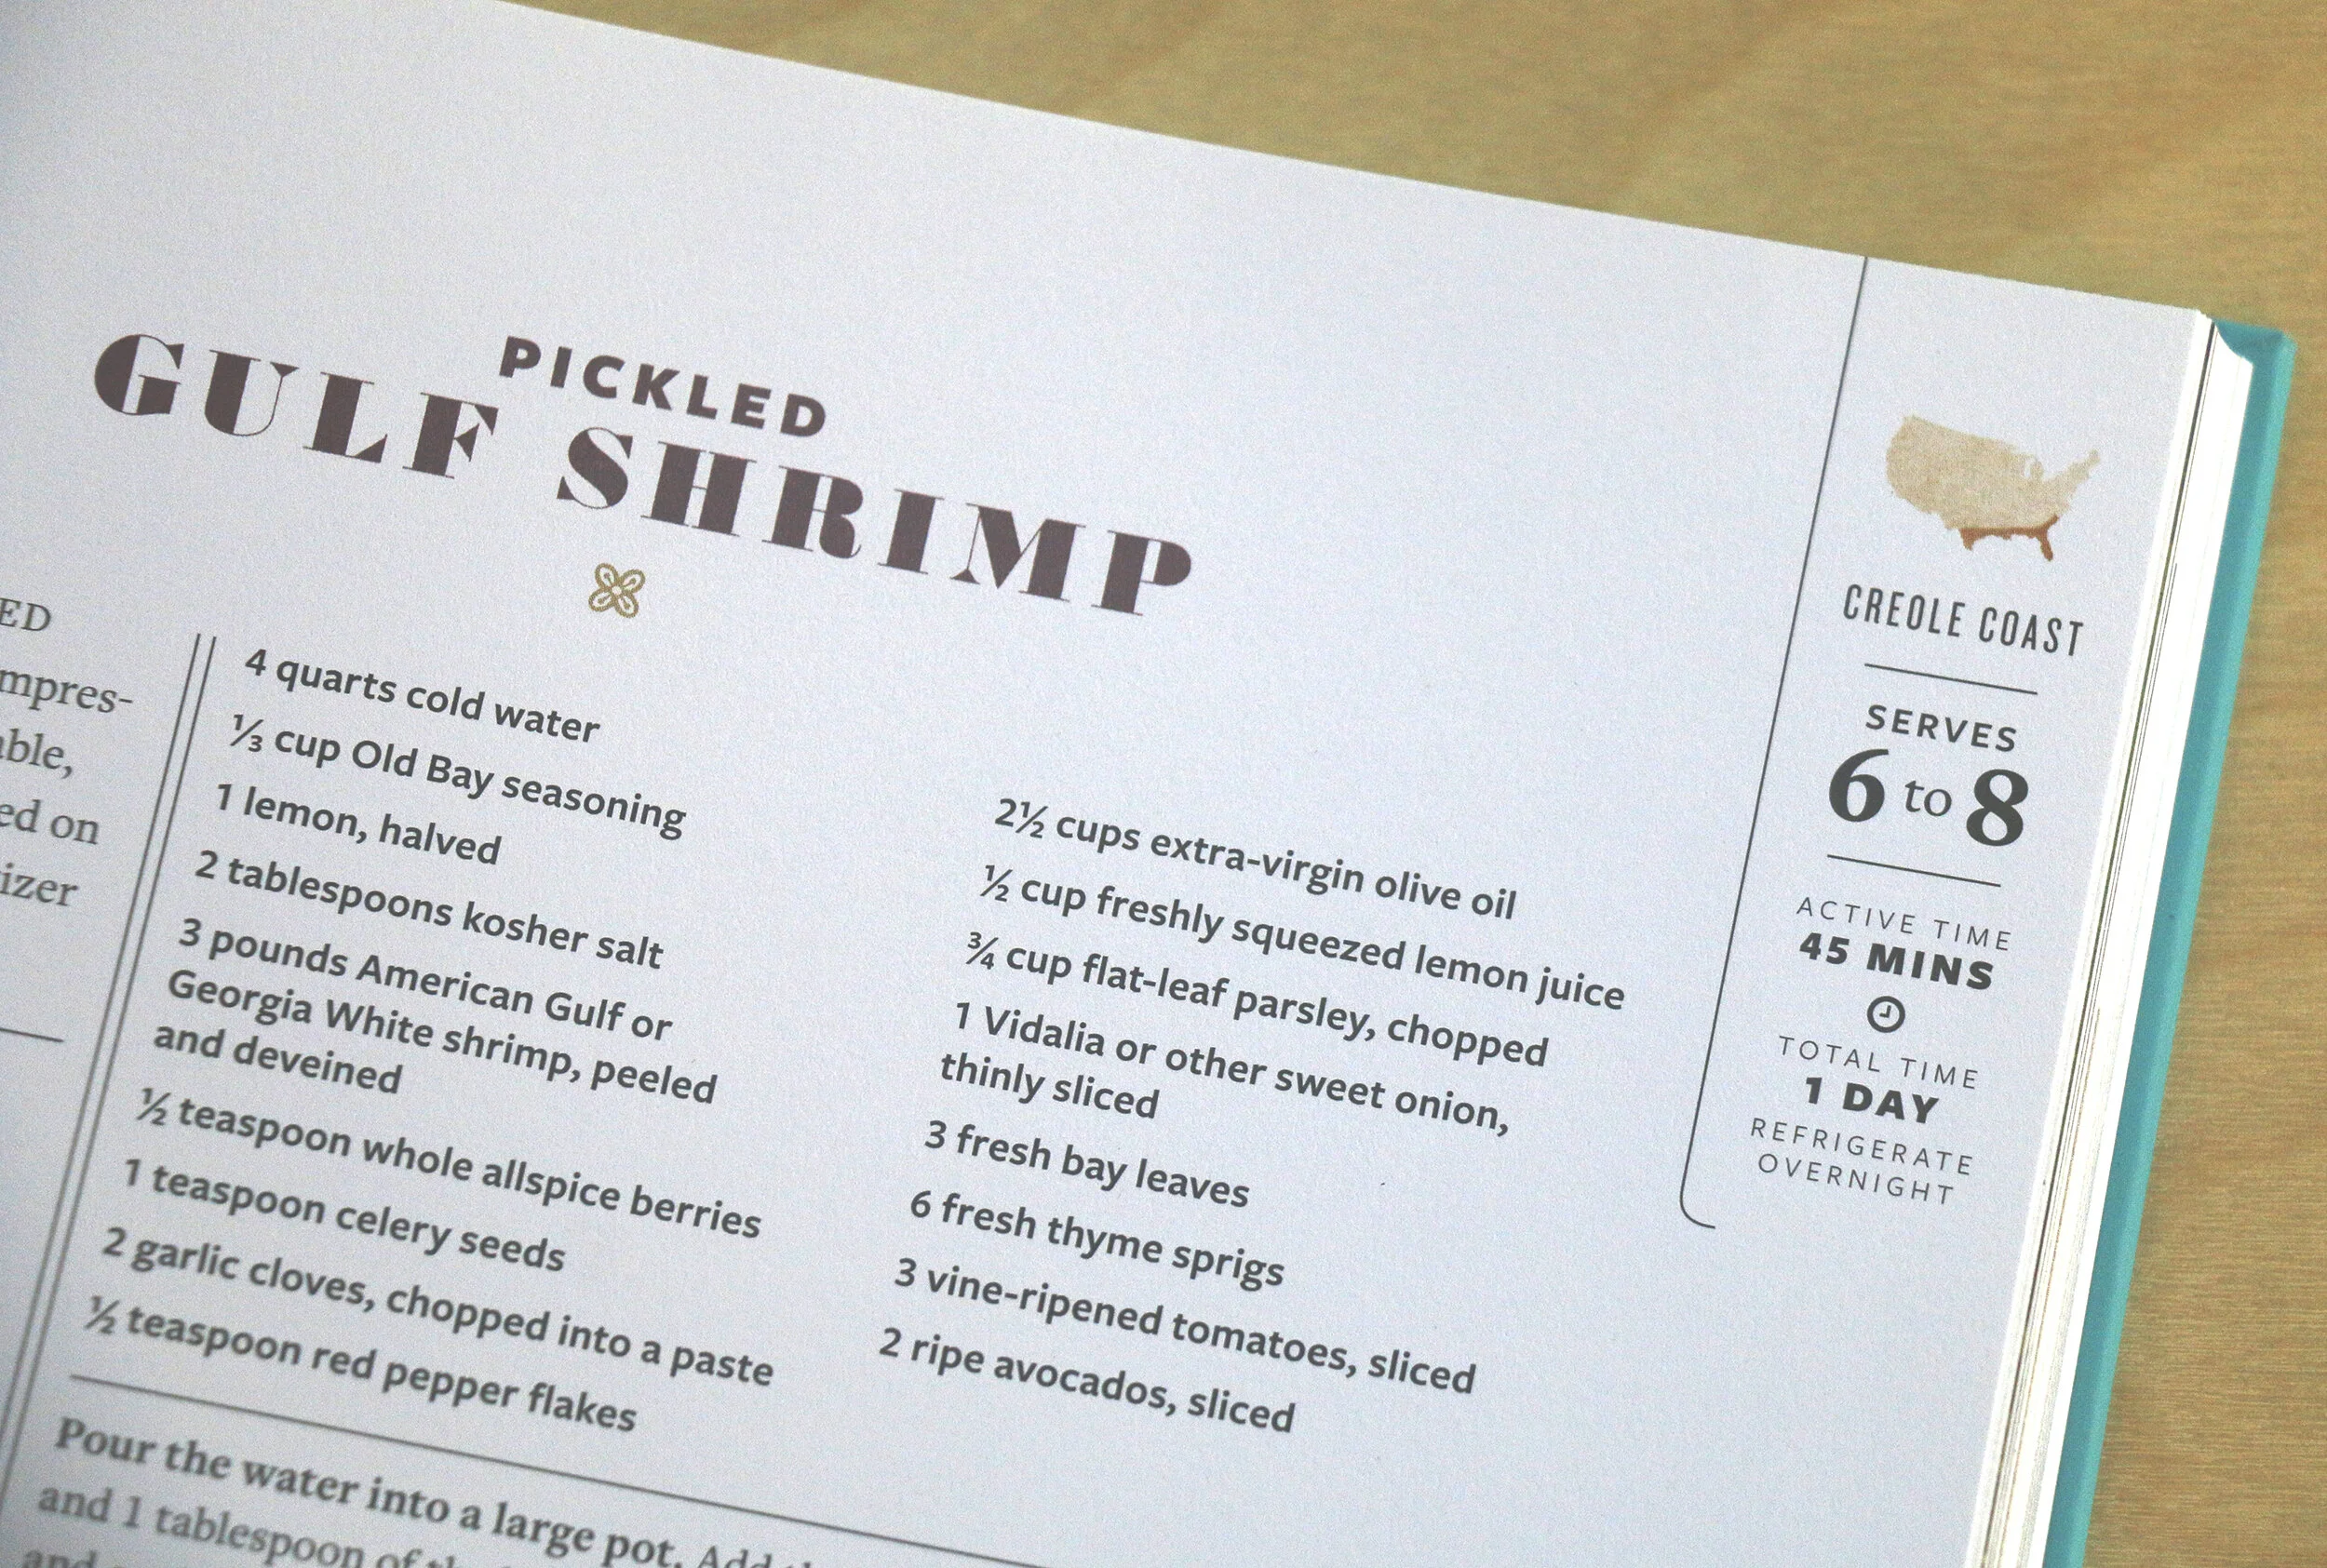 PICKLED
GULF SHRIMP
ED
mpres-
able,
ed on
izer
4 quarts cold water
⅓ cup Old Bay seasoning
1 lemon, halved
2 tablespoons kosher salt
3 pounds American Gulf or
Georgia White shrimp, peeled
and deveined
½ teaspoon whole allspice berries
1 teaspoon celery seeds
2 garlic cloves, chopped into a paste
½ teaspoon red pepper flakes
2½ cups extra-virgin olive oil
½ cup freshly squeezed lemon juice
¾ cup flat-leaf parsley, chopped
1 Vidalia or other sweet onion,
thinly sliced
3 fresh bay leaves
6 fresh thyme sprigs
3 vine-ripened tomatoes, sliced
2 ripe avocados, sliced
Pour the water into a large pot. Add
and 1 tablespoon of
and
CREOLE COAST
SERVES
6 to 8
ACTIVE TIME
45 MINS
TOTAL TIME
1 DAY
REFRIGERATE
OVERNIGHT